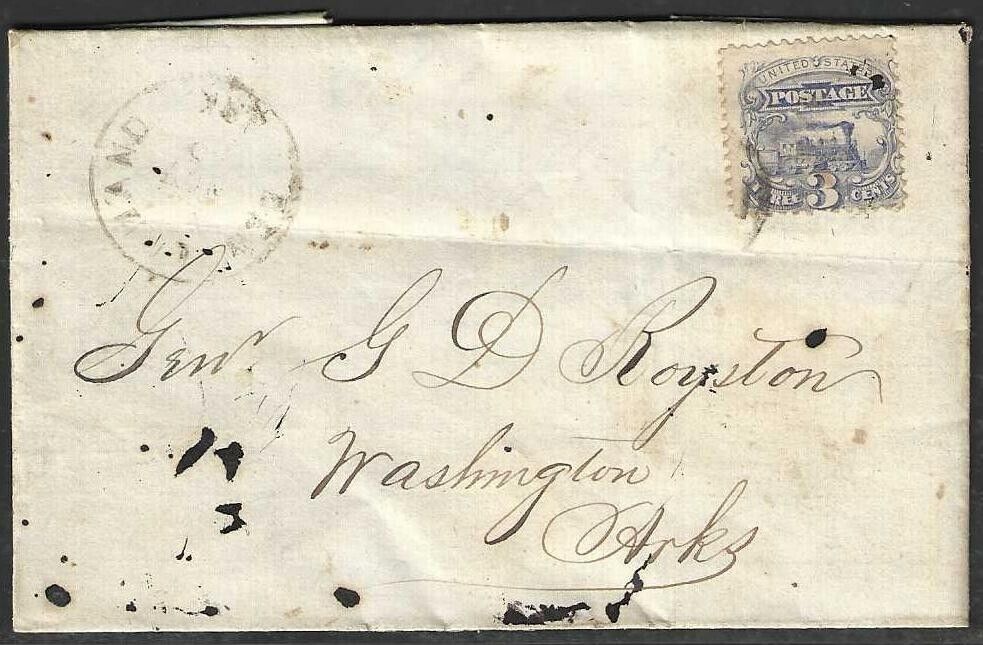 UNITED STATES
POSTAGE
THREE 3 CENTS
Genl. G D Royston
Washington
Arks